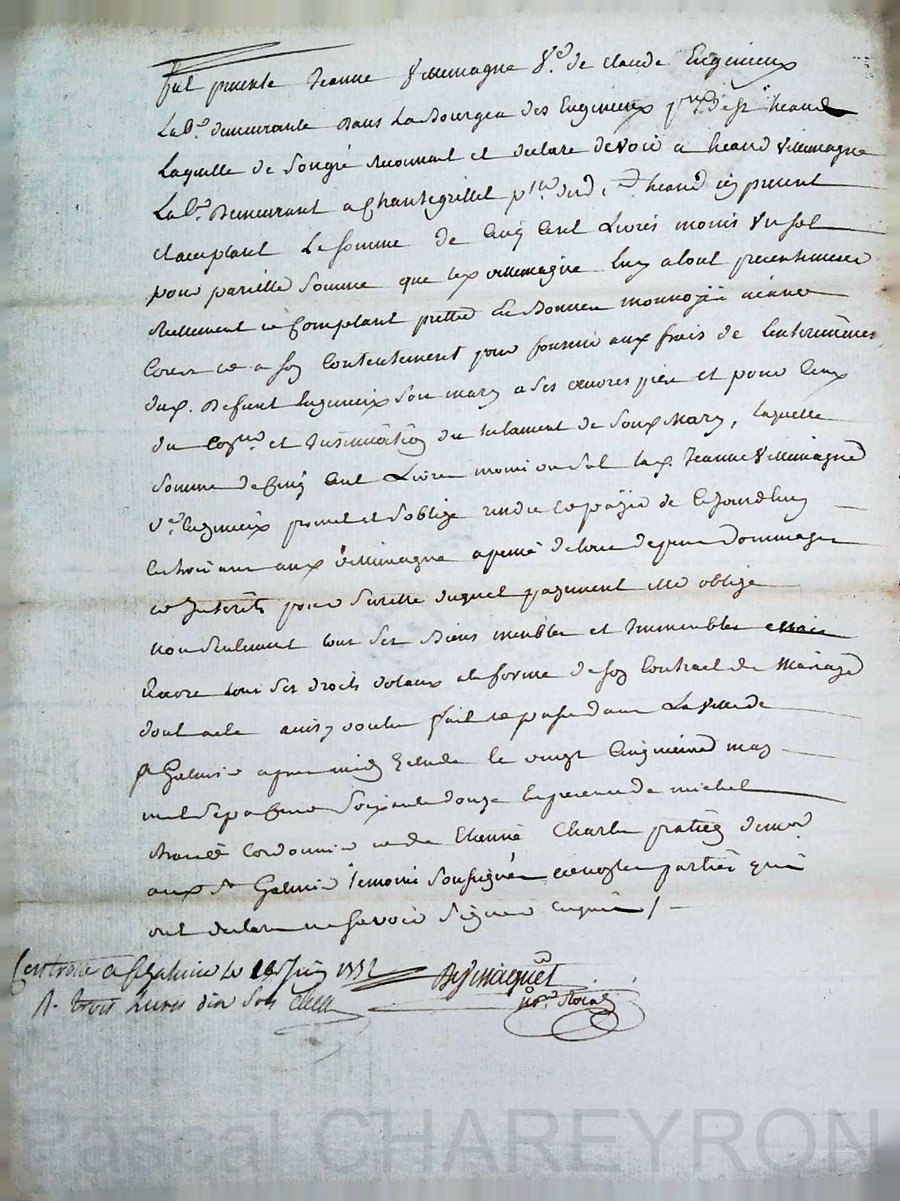 fut presente Jeanne Villemagne Ve. de Claude Enginieux
Lab.r demeurante dans Le Bourgea des Enginieux p.sse de St heand
Laquelle de Son gré reconnait et declare devoir a heand Villemagne
Lab.r Demeurant a Chantegrillet p.sse dud. St heand icy present
et acceptant La Somme de Cinq Cent Livres moins Un Sol
pour pareille Somme que led. Villemagne luy a tout presentement
reellement et Comptant pretté en Bonnes monnoÿes
Cours et a Son Contentement pour fournir aux frais de L'enterrement
dud. Defunt Enginieux Son mary a Ses œuvres pies et pour Ceux
du et insinuation du testament de Sond. Mary, laquelle
Somme de Cinq Cent Livres moins un Sol lad. Jeanne Villemagne
Ve. Enginieux promet et S'oblige rendre et paÿer de ce Jourd'huy
en trois ans aud. Villemagne a peine de tous depens Dommages
et Interets pour Sureté duquel payement elle oblige
non Seulement tous Ses Biens meubles et Immeubles mais
Encore tous Ses droits dotaux a la forme de Son Contract de Mariage
dont acte ainsy voulu fait et passé dans La Ville de
St Galmier apres midy le vingt Cinquieme may
mil Sept Cent Soixante douze En presence de michel
Cordonnier et de Etienne Charles praticien demt.
aud. St Galmier temoins Soussignés et non les parties qui
ont declare ne Savoir Signer enquis /-
Controllé a St Galmier le Juin 1772
R. trois livres dix Sols
no.re Roial
Pascal CHAREYRON